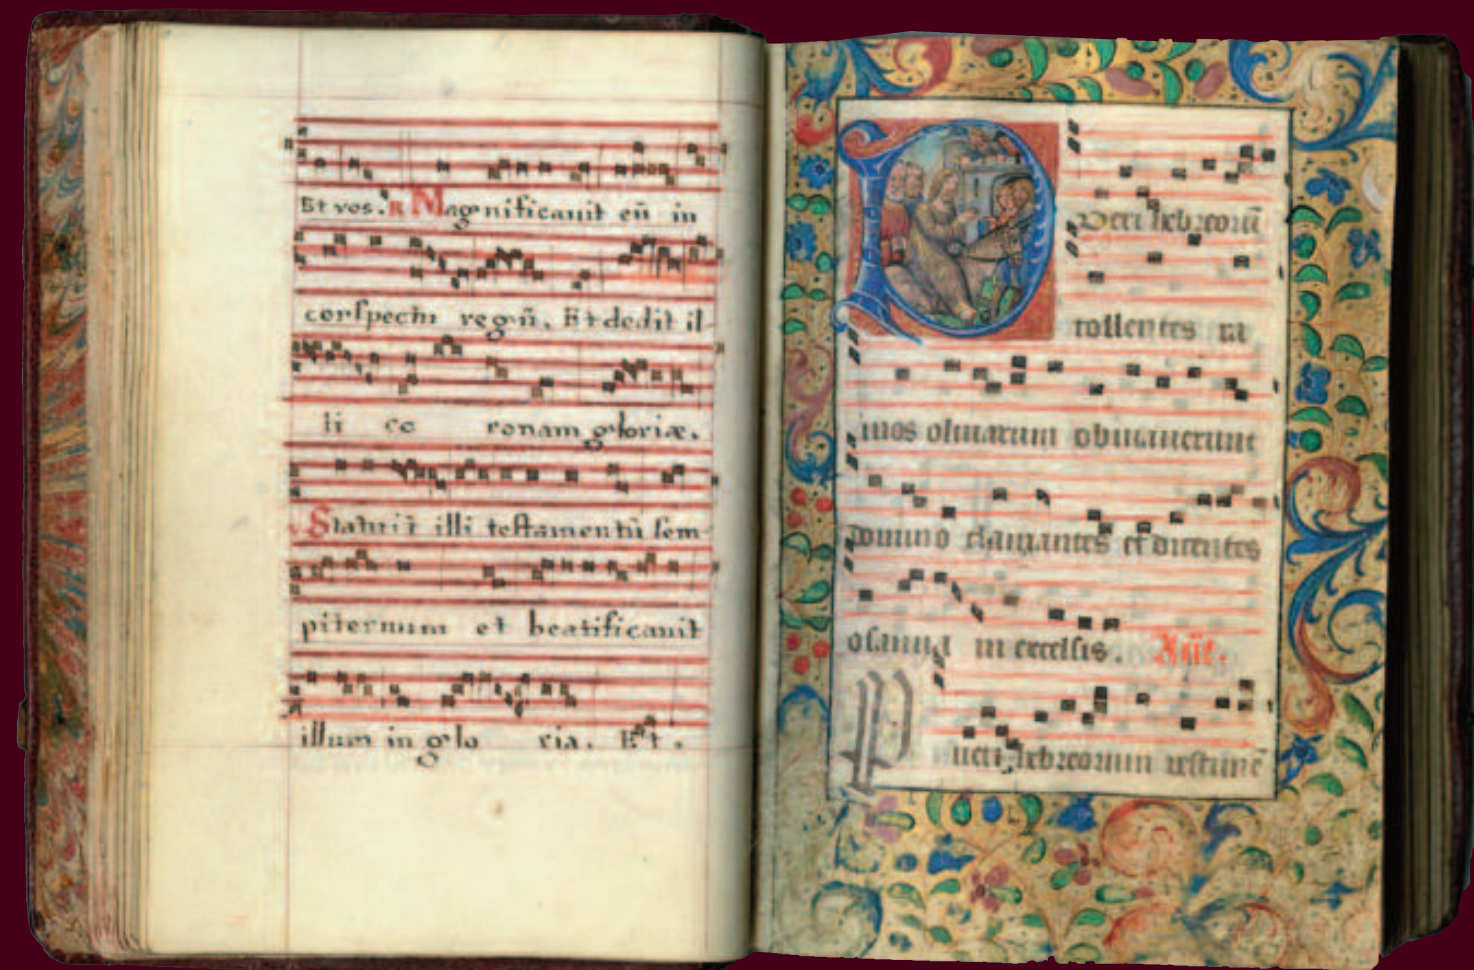 Et vos. R Magnificavit eū in
conspectu regū. Et dedit il-
li co ronam gloriæ.
Statuit illi testamentū sem-
piternum et beatificavit
illum in glo ria. Et.
Pueri hebreorū
tollentes ra
mos olivarum obviaverunt
domino clamantes et dicentes
osanna in excelsis. Añe.
Pueri hebreorum vestimē